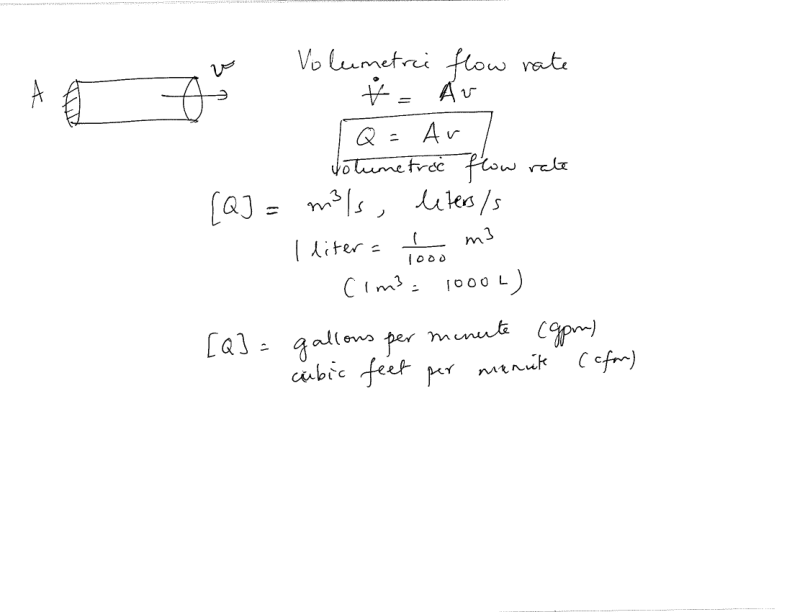 A
v
Volumetric flow rate
V̶̇ = Av
Q = Av
volumetric flow rate
[Q] = m³/s, liters/s
1 liter = 1/1000 m³
(1m³ = 1000 L)
[Q] = gallons per minute (gpm)
cubic feet per minute (cfm)